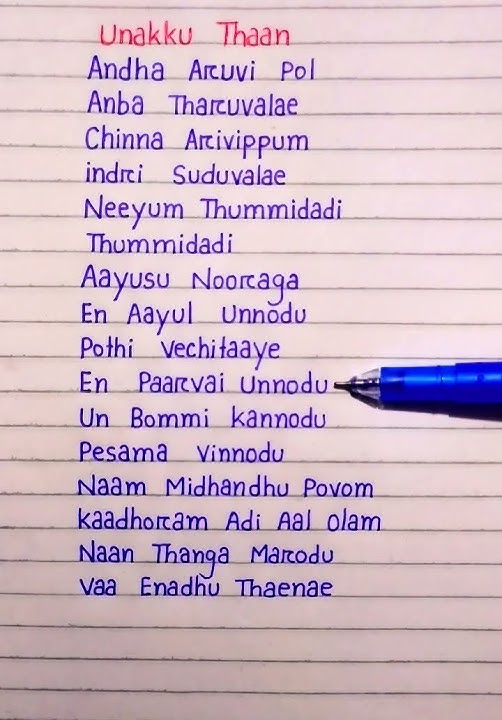 Unakku Thaan
Andha Aruvi Pol
Anba Tharuvalae
Chinna Arivippum
indri Suduvalae
Neeyum Thummidadi
Thummidadi
Aayusu Nooraga
En Aayul Unnodu
Pothi Vechitaaye
En Paarvai Unnodu
Un Bommi kannodu
Pesama Vinnodu
Naam Midhandhu Povom
Kaadhoram Adi Aal Olam
Naan Thanga Marodu
Vaa Enadhu Thaenae